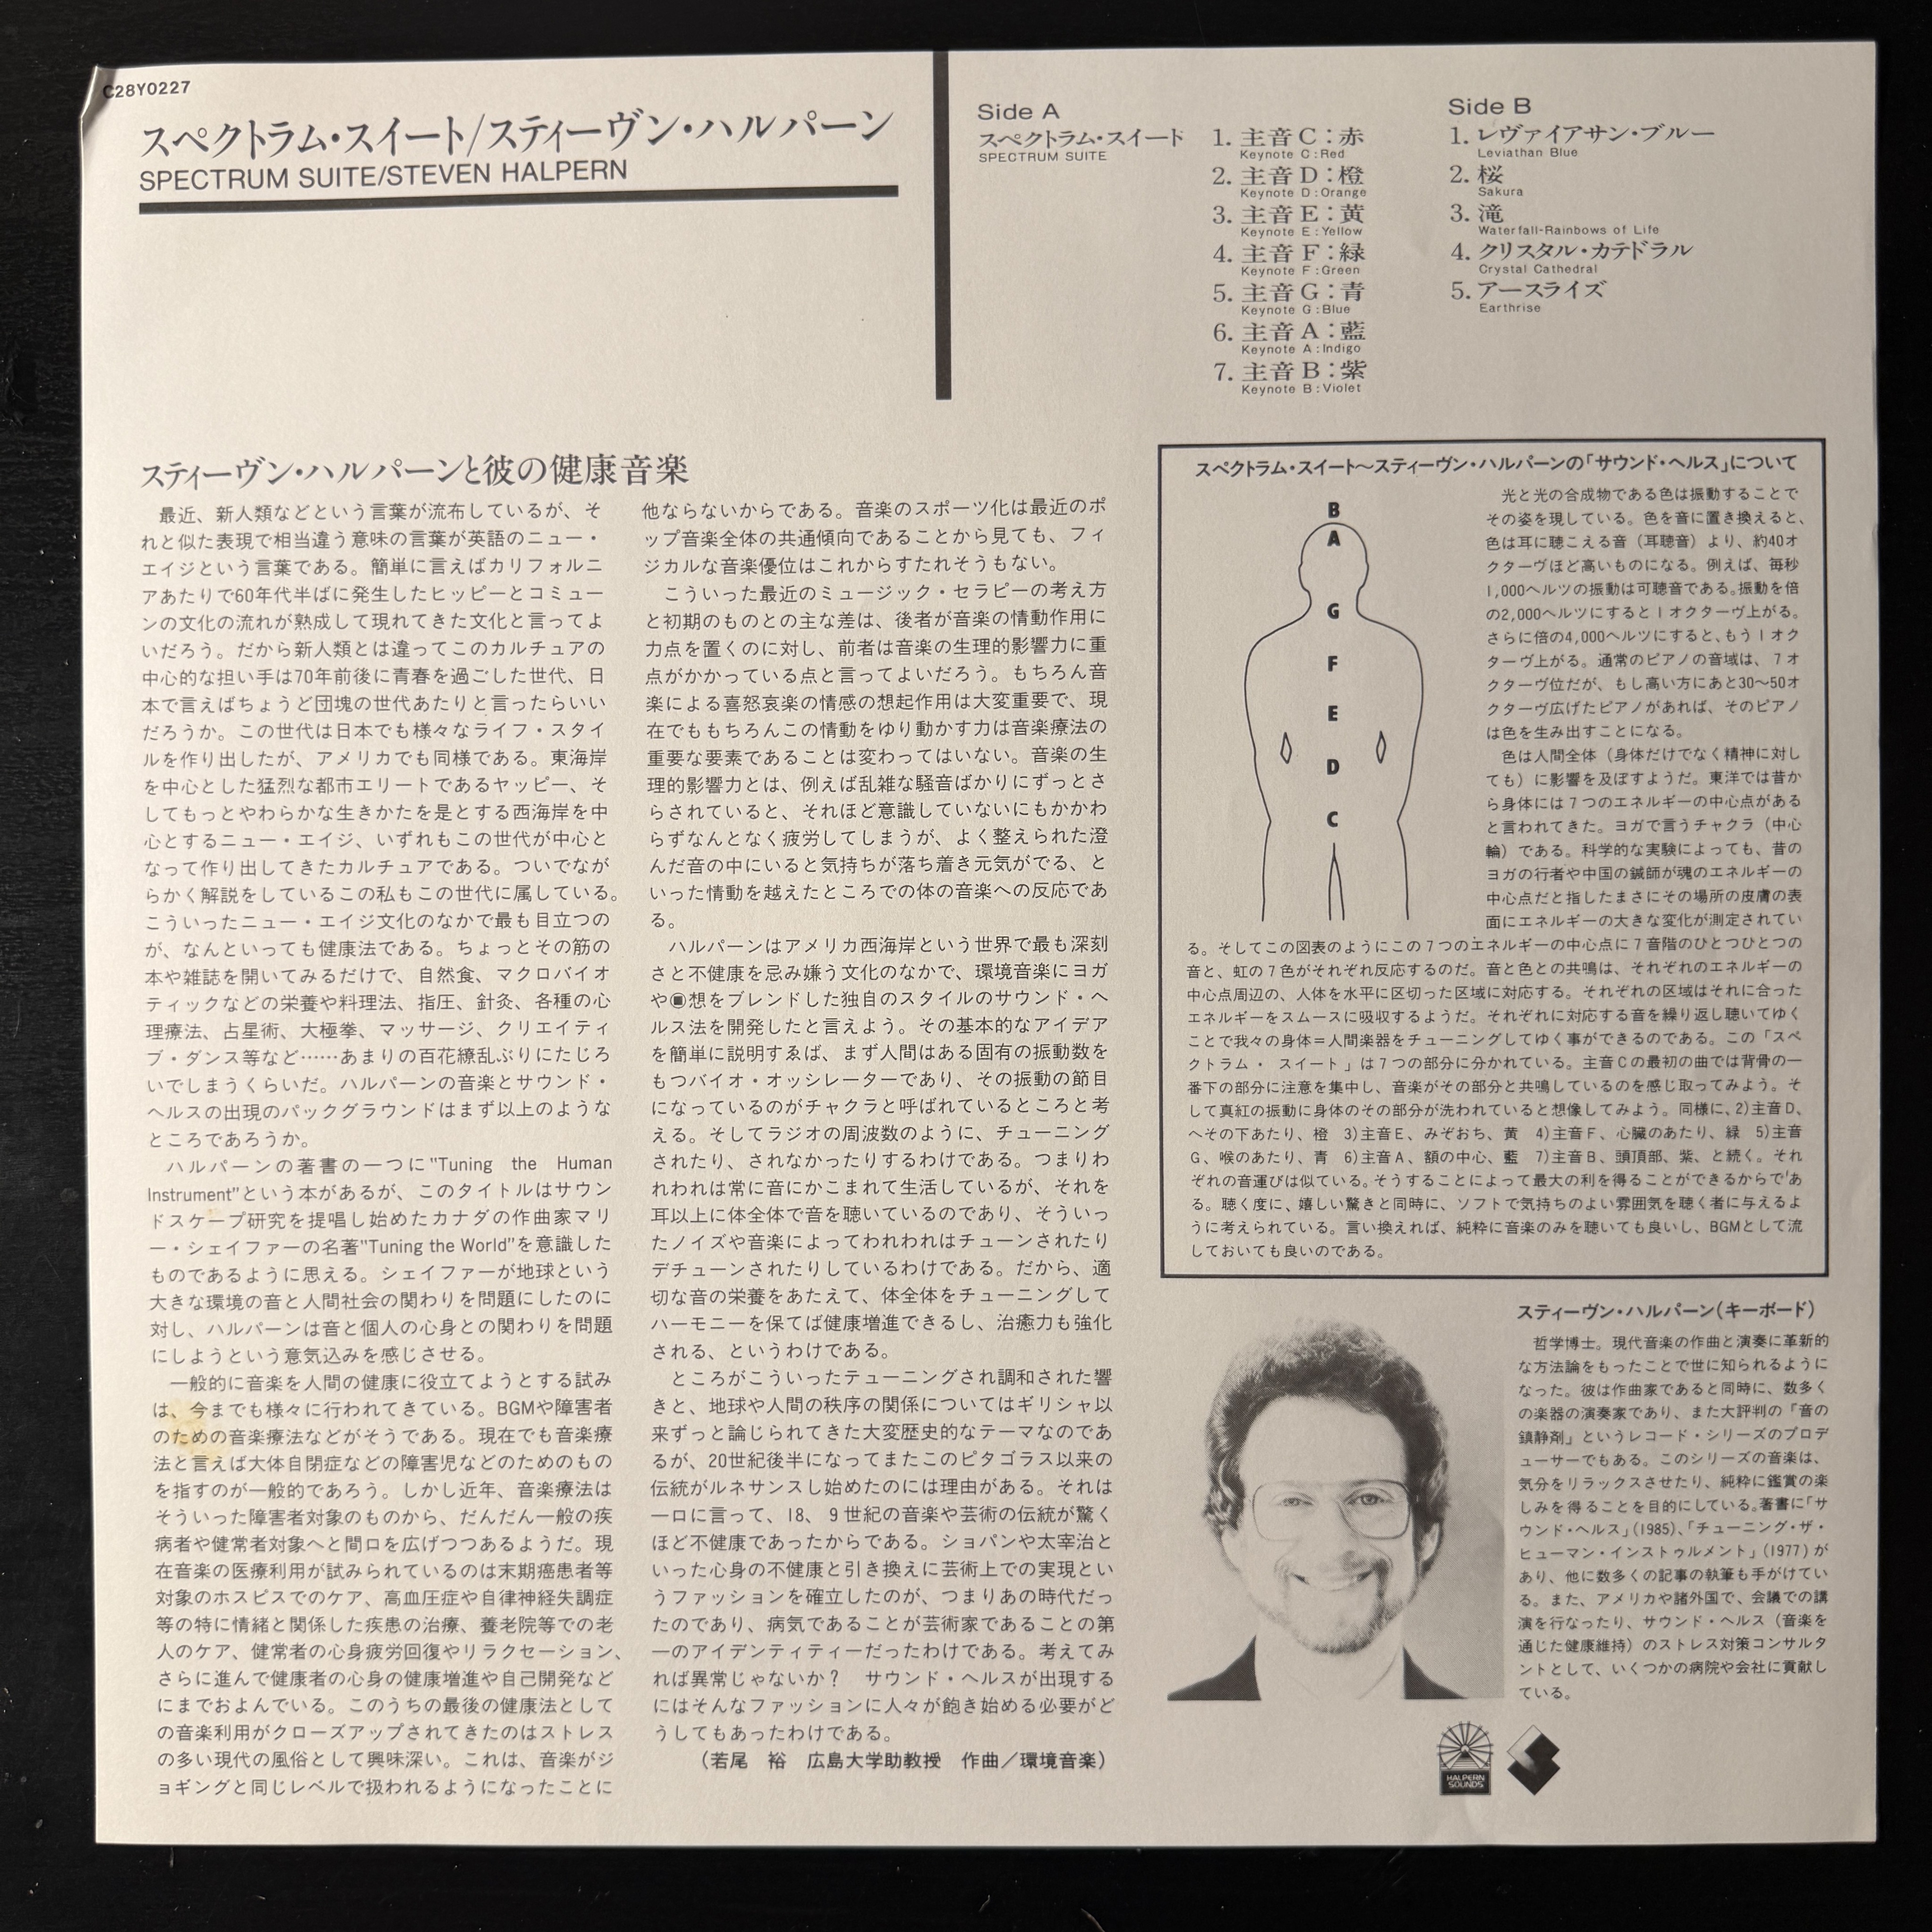 C28Y0227
スペクトラム・スイート/スティーヴン・ハルパーン
SPECTRUM SUITE/STEVEN HALPERN
Side A
スペクトラム・スイード
SPECTRUM SUITE
1. 主音C：赤
Keynote C:Red
2. 主音D：橙
Keynote D:Orange
3. 主音E：黄
Keynote E:Yellow
4. 主音F：緑
Keynote F:Green
5. 主音G：青
Keynote G:Blue
6. 主音A：藍
Keynote A:Indigo
7. 主音B：紫
Keynote B:Violet
Side B
1. レヴァイアサン・ブルー
Leviathan Blue
2. 桜
Sakura
3. 滝
Waterfall-Rainbows of Life
4. クリスタル・カテドラル
Crystal Cathedral
5. アースライズ
Earthrise
スティーヴン・ハルパーンと彼の健康音楽
最近、新人類などという言葉が流布しているが、そ
れと似た表現で相当違う意味の言葉が英語のニュー・
エイジという言葉である。簡単に言えばカリフォルニ
アあたりで60年代半ばに発生したヒッピーとコミュー
ンの文化の流れが熟成して現れてきた文化と言ってよ
いだろう。だから新人類とは違ってこのカルチュアの
中心的な担い手は70年前後に青春を過ごした世代、日
本で言えばちょうど団塊の世代あたりと言ったらいい
だろうか。この世代は日本でも様々なライフ・スタイ
ルを作り出したが、アメリカでも同様である。東海岸
を中心とした猛烈な都市エリートであるヤッピー、そ
してもっとやわらかな生きかたを是とする西海岸を中
心とするニュー・エイジ、いずれもこの世代が中心と
なって作り出してきたカルチュアである。ついでなが
らかく解説をしているこの私もこの世代に属している。
こういったニュー・エイジ文化のなかで最も目立つの
が、なんといっても健康法である。ちょっとその筋の
本や雑誌を開いてみるだけで、自然食、マクロバイオ
ティックなどの栄養や料理法、指圧、針灸、各種の心
理療法、占星術、大極拳、マッサージ、クリエイティ
ブ・ダンス等など……あまりの百花繚乱ぶりにたじろ
いでしまうくらいだ。ハルパーンの音楽とサウンド・
ヘルスの出現のバックグラウンドはまず以上のような
ところであろうか。
ハルパーンの著書の一つに"Tuning the Human
Instrument"という本があるが、このタイトルはサウン
ドスケープ研究を提唱し始めたカナダの作曲家マリ
ー・シェイファーの名著"Tuning the World"を意識した
ものであるように思える。シェイファーが地球という
大きな環境の音と人間社会の関わりを問題にしたのに
対し、ハルパーンは音と個人の心身との関わりを問題
にしようという意気込みを感じさせる。
一般的に音楽を人間の健康に役立てようとする試み
は、今までも様々に行われてきている。BGMや障害者
のための音楽療法などがそうである。現在でも音楽療
法と言えば大体自閉症などの障害児などのためのもの
を指すのが一般的であろう。しかし近年、音楽療法は
そういった障害者対象のものから、だんだん一般の疾
病者や健常者対象へと間口を広げつつあるようだ。現
在音楽の医療利用が試みられているのは末期癌患者等
対象のホスピスでのケア、高血圧症や自律神経失調症
等の特に情緒と関係した疾患の治療、養老院等での老
人のケア、健常者の心身疲労回復やリラクセーション、
さらに進んで健康者の心身の健康増進や自己開発など
にまでおよんでいる。このうちの最後の健康法として
の音楽利用がクローズアップされてきたのはストレス
の多い現代の風俗として興味深い。これは、音楽がジ
ョギングと同じレベルで扱われるようになったことに
他ならないからである。音楽のスポーツ化は最近のポ
ップ音楽全体の共通傾向であることから見ても、フィ
ジカルな音楽優位はこれからすたれそうもない。
こういった最近のミュージック・セラピーの考え方
と初期のものとの主な差は、後者が音楽の情動作用に
力点を置くのに対し、前者は音楽の生理的影響力に重
点がかかっている点と言ってよいだろう。もちろん音
楽による喜怒哀楽の情感の想起作用は大変重要で、現
在でももちろんこの情動をゆり動かす力は音楽療法の
重要な要素であることは変わってはいない。音楽の生
理的影響力とは、例えば乱雑な騒音ばかりにずっとさ
らされていると、それほど意識していないにもかかわ
らずなんとなく疲労してしまうが、よく整えられた澄
んだ音の中にいると気持ちが落ち着き元気がでる、と
いった情動を越えたところでの体の音楽への反応であ
る。
ハルパーンはアメリカ西海岸という世界で最も深刻
さと不健康を忌み嫌う文化のなかで、環境音楽にヨガ
や◉想をブレンドした独自のスタイルのサウンド・ヘ
ルス法を開発したと言えよう。その基本的なアイデア
を簡単に説明すゑば、まず人間はある固有の振動数を
もつバイオ・オッシレーターであり、その振動の節目
になっているのがチャクラと呼ばれているところと考
える。そしてラジオの周波数のように、チューニング
されたり、されなかったりするわけである。つまりわ
れわれは常に音にかこまれて生活しているが、それを
耳以上に体全体で音を聴いているのであり、そういっ
たノイズや音楽によってわれわれはチューンされたり
デチューンされたりしているわけである。だから、適
切な音の栄養をあたえて、体全体をチューニングして
ハーモニーを保てば健康増進できるし、治癒力も強化
される、というわけである。
ところがこういったテューニングされ調和された響
きと、地球や人間の秩序の関係についてはギリシャ以
来ずっと論じられてきた大変歴史的なテーマなのであ
るが、20世紀後半になってまたこのピタゴラス以来の
伝統がルネサンスし始めたのには理由がある。それは
一口に言って、18、9世紀の音楽や芸術の伝統が驚く
ほど不健康であったからである。ショパンや太宰治と
いった心身の不健康と引き換えに芸術上での実現とい
うファッションを確立したのが、つまりあの時代だっ
たのであり、病気であることが芸術家であることの第
一のアイデンティティーだったわけである。考えてみ
れば異常じゃないか？ サウンド・ヘルスが出現する
にはそんなファッションに人々が飽き始める必要がど
うしてもあったわけである。
（若尾 裕 広島大学助教授 作曲／環境音楽）
スペクトラム・スイート～スティーヴン・ハルパーンの「サウンド・ヘルス」について
B
A
G
F
E
D
C
光と光の合成物である色は振動することで
その姿を現している。色を音に置き換えると、
色は耳に聴こえる音（耳聴音）より、約40オ
クターヴほど高いものになる。例えば、毎秒
1,000ヘルツの振動は可聴音である。振動を倍
の2,000ヘルツにすると1オクターヴ上がる。
さらに倍の4,000ヘルツにすると、もう1オク
ターヴ上がる。通常のピアノの音域は、7オ
クターヴ位だが、もし高い方にあと30～50オ
クターヴ広げたピアノがあれば、そのピアノ
は色を生み出すことになる。
色は人間全体（身体だけでなく精神に対し
ても）に影響を及ぼすようだ。東洋では昔か
ら身体には7つのエネルギーの中心点がある
と言われてきた。ヨガで言うチャクラ（中心
輪）である。科学的な実験によっても、昔の
ヨガの行者や中国の鍼師が魂のエネルギーの
中心点だと指したまさにその場所の皮膚の表
面にエネルギーの大きな変化が測定されてい
る。そしてこの図表のようにこの7つのエネルギーの中心点に7音階のひとつひとつの
音と、虹の7色がそれぞれ反応するのだ。音と色との共鳴は、それぞれのエネルギーの
中心点周辺の、人体を水平に区切った区域に対応する。それぞれの区域はそれに合った
エネルギーをスムースに吸収するようだ。それぞれに対応する音を繰り返し聴いてゆく
ことで我々の身体＝人間楽器をチューニングしてゆく事ができるのである。この「スペ
クトラム・ スイート」は7つの部分に分かれている。主音Cの最初の曲では背骨の一
番下の部分に注意を集中し、音楽がその部分と共鳴しているのを感じ取ってみよう。そ
して真紅の振動に身体のその部分が洗われていると想像してみよう。同様に、2)主音D、
へその下あたり、橙 3)主音E、みぞおち、黄 4)主音F、心臓のあたり、緑 5)主音
G、喉のあたり、青 6)主音A、額の中心、藍 7)主音B、頭頂部、紫、と続く。それ
ぞれの音運びは似ている。そうすることによって最大の利を得ることができるからであ
る。聴く度に、嬉しい驚きと同時に、ソフトで気持ちのよい雰囲気を聴く者に与えるよ
うに考えられている。言い換えれば、純粋に音楽のみを聴いても良いし、BGMとして流
しておいても良いのである。
スティーヴン・ハルパーン(キーボード)
哲学博士。現代音楽の作曲と演奏に革新的
な方法論をもったことで世に知られるように
なった。彼は作曲家であると同時に、数多く
の楽器の演奏家であり、また大評判の「音の
鎮静剤」というレコード・シリーズのプロデ
ューサーでもある。このシリーズの音楽は、
気分をリラックスさせたり、純粋に鑑賞の楽
しみを得ることを目的にしている。著書に「サ
ウンド・ヘルス」(1985)、「チューニング・ザ・
ヒューマン・インストゥルメント」(1977)が
あり、他に数多くの記事の執筆も手がけてい
る。また、アメリカや諸外国で、会議での講
演を行なったり、サウンド・ヘルス（音楽を
通じた健康維持）のストレス対策コンサルタ
ントとして、いくつかの病院や会社に貢献し
ている。
HALPERN
SOUNDS